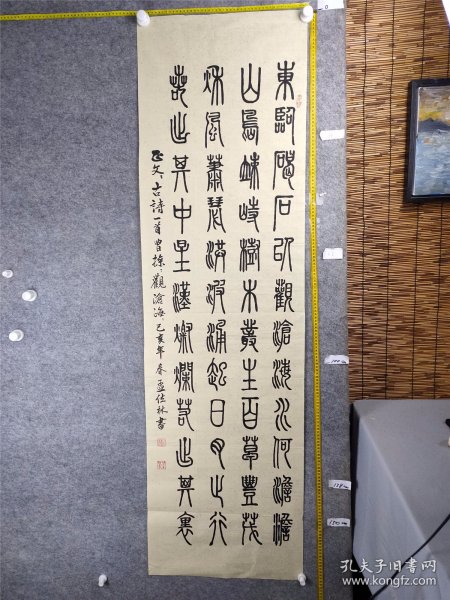 東臨碣石以觀滄海水何澹澹
山島竦峙樹木叢生百草豐茂
秋風蕭瑟洪波涌起日月之行
若出其中星漢燦爛若出其裏
正文古詩一首曹操觀滄海己亥年春孟林書
0
孔夫子旧书网
www.kongfz.com